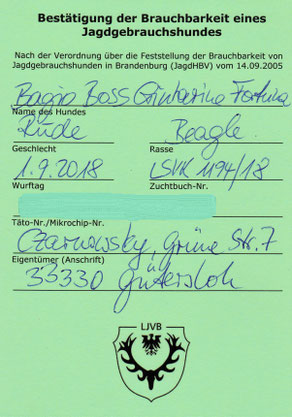 Bestätigung der Brauchbarkeit eines
Jagdgebrauchshundes
Nach der Verordnung über die Feststellung der Brauchbarkeit von
Jagdgebrauchshunden in Brandenburg (JagdHBV) vom 14.09.2005
Bagio Boss Gintarina Fortuna
Name des Hundes
Rüde Beagle
Geschlecht Rasse
1.9.2018 LSVK 1194/18
Wurftag Zuchtbuch-Nr.
Täto-Nr./Mikrochip-Nr.
Czarnowsky, Grüne Str. 7
Eigentümer (Anschrift)
33330 Gütersloh
LJVB